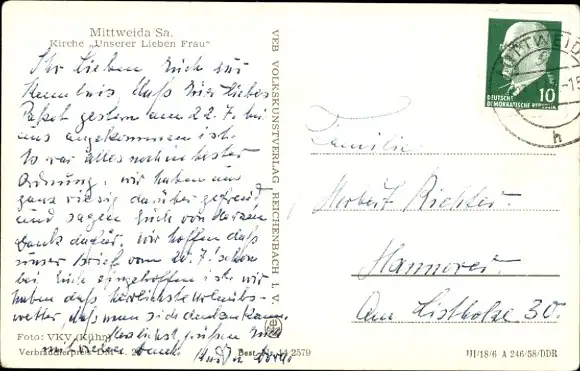 Mittweida Sa.
Kirche „Unserer Lieben Frau"
Ihr Lieben Euch zur
Kenntnis daß Euer liebes
Paket gestern am 22.7. bei
uns angekommen ist.
Es war alles noch in bester
Ordnung, wir haben uns
ganz riesig darüber gefreut
und sagen Euch von Herzen
Dank dafür. Wir hoffen daß
unser Brief vom 20.7. schon
bei Euch eingetroffen ist. wir
haben daß herrlichste Urlaubs-
wetter, daß man sich denken kann.
Herzlichst grüßen Euch
mit vielem Dank
Foto: VKV (Kühn)
Verbraucherpreis DM
Best.-Nr. 14 2579
VEB VOLKSKUNSTVERLAG REICHENBACH I. V.
MITTWEIDA
h
10
DEUTSCHE
DEMOKRATISCHE REPUBLIK
Familie
Herbert Richter.
Hannover.
Am Listholze 30.
III/18/6 A 246/58/DDR